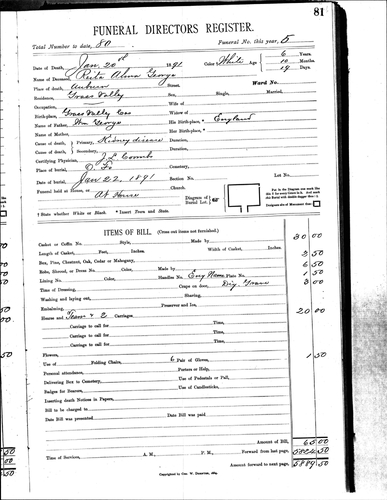 81
FUNERAL DIRECTORS REGISTER.
Total Number to date, 80 Funeral No. this year, 5
Date of Death, Jan 20th 1891 Color White Age 6 Years
Name of Deceased, Alma George 10 Months
Place of death, Auburn 19 Days.
Residence, Grass Valley Ward No.
Sex, Single, Married,
Occupation, Wife of
Birthplace, Grass Valley Widow of
Name of Father, Wm George His Birthplace, England
Name of Mother, Her Birthplace,
Cause of death, Primary, Kidney disease Duration,
Cause of death, Secondary, Duration,
Certifying Physician, J. L. Coombs
Place of burial, Cemetery,
Date of burial, Jan 22, 1891 Section No. Lot No.
Funeral held at House, or Church.
At House
Diagram of Burial Lot.
† State whether White or Black. * Insert Town and State.
ITEMS OF BILL. (Cross out items not furnished.)
Casket or Coffin No. Style, Made by 30 00
Length of Casket, Feet, Inches. Width of Casket, Inches.
Box, Pine, Chestnut, Oak, Cedar or Mahogany, 3 50
Robe, Shroud, or Dress No. Color, Made by 6 50
Lining No. Color, Handles No. Eng Name Plate No. 1 50
Time of Dressing, Crape on door, Dig Grave 3 00
Washing and laying out, Shaving,
Embalming, Preserver and Ice,
Hearse and Team & 2 Carriages to call for Time, 20 00
Carriage to call for Time,
Carriages to call for Time,
Carriages to call for Time,
Flowers,
Use of Folding Chairs, 6 Pair of Gloves, 1 50
Personal attendance, Porters or Help,
Delivering Box to Cemetery, Use of Pedestals or Pall,
Badges for Bearers, Use of Candlesticks,
Inserting death Notices in Papers,
Bill to be charged to
Date Bill was presented Date Bill was paid
Amount of Bill, 65 00
Time of Services, A. M., P. M. Forward from last page, 5824 50
Amount forward to next page, 5889 50